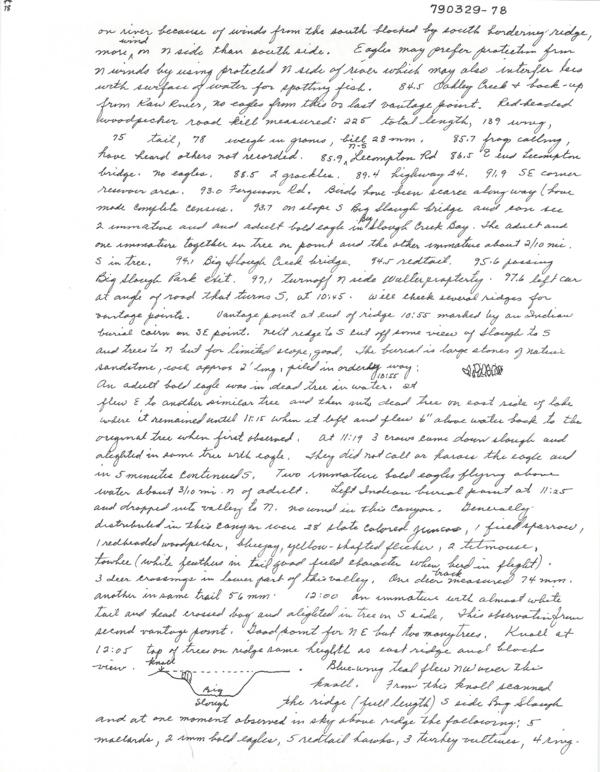 790329-78
78
on river because of winds from the south blocked by south bordering ridge,
more wind on N side than south side. Eagles may prefer protection from
N winds by using protected N side of river which may also interfer less
with surface of water for spotting fish. 84.5 Oakley Creek & back-up
from Kaw River, no eagles from this or last vantage point. Red-headed
woodpecker road kill measured: 225 total length, 139 wing,
75 tail, 78 weigh in grams, bill 28 mm. 85.7 frog calling,
have heard others not recorded. 85.9 N-S Lecompton Rd 86.5 E end Lecompton
bridge. no eagles. 88.5 2 grackles. 89.4 highway 24. 91.9 SE corner
reservoir area. 93.0 Ferguson Rd. Birds have been scarce along way (have
made complete census. 93.7 on slope S Big Slough bridge and can see
2 immature and and adult bald eagle in big Slough Creek Bay. The adult and
one immature together in tree on point and the other immature about 2/10 mi.
S in tree. 94.1 Big Slough Creek bridge. 94.5 redtail. 95.6 passing
Big Slough Park exit. 97.1 turnoff N side Walter property. 97.6 left car
at angle of road that turns S, at 10:45. Will check several ridges for
vantage points. Vantage point at end of ridge 10:55 marked by an Indian
burial cairn on SE point. Next ridge to S cut off some view of Slough to S
and trees to N but for limited scope, good. The burial is large stones of native
sandstone, each approx 2' long, piled in orderly way:
An adult bald eagle was in dead tree in water. 10:55 It
flew E to another similar tree and then into dead tree on east side of lake
where it remained until 11:15 when it left and flew 6" above water back to the
original tree when first observed. At 11:19 3 crows came down slough and
alighted in same tree with eagle. They did not call or harass the eagle and
in 5 minutes continued S. Two immature bald eagles flying above
water about 3/10 mi. N of adult. Left Indian burial point at 11:25
and dropped into valley to N. no wind in this canyon. Generally
distributed in this canyon were 28 slate colored juncos, 1 field sparrow,
1 redheaded woodpecker, bluejay, yellow-shafted flicker, 2 titmouse,
towhee (white feathers in tail good field character when bird in flight).
3 deer crossings in lower part of this valley. One deer track measured 74 mm.
another in same trail 56 mm. 12:00 an immature with almost white
tail and head crossed bay and alighted in tree on S side. This observation from
second vantage point. Good point for NE but too many trees. Knoll at
12:05 top of trees on ridge same heighth as east ridge and blocks
view. Knoll Blue-wing teal flew NW over this
Big knoll. From this knoll scanned
Slough the ridge (full length) S side Big Slough
and at one moment observed in sky above ridge the following: 5
mallards, 2 imm bald eagles, 5 redtail hawks, 3 turkey vultures, 4 ring-